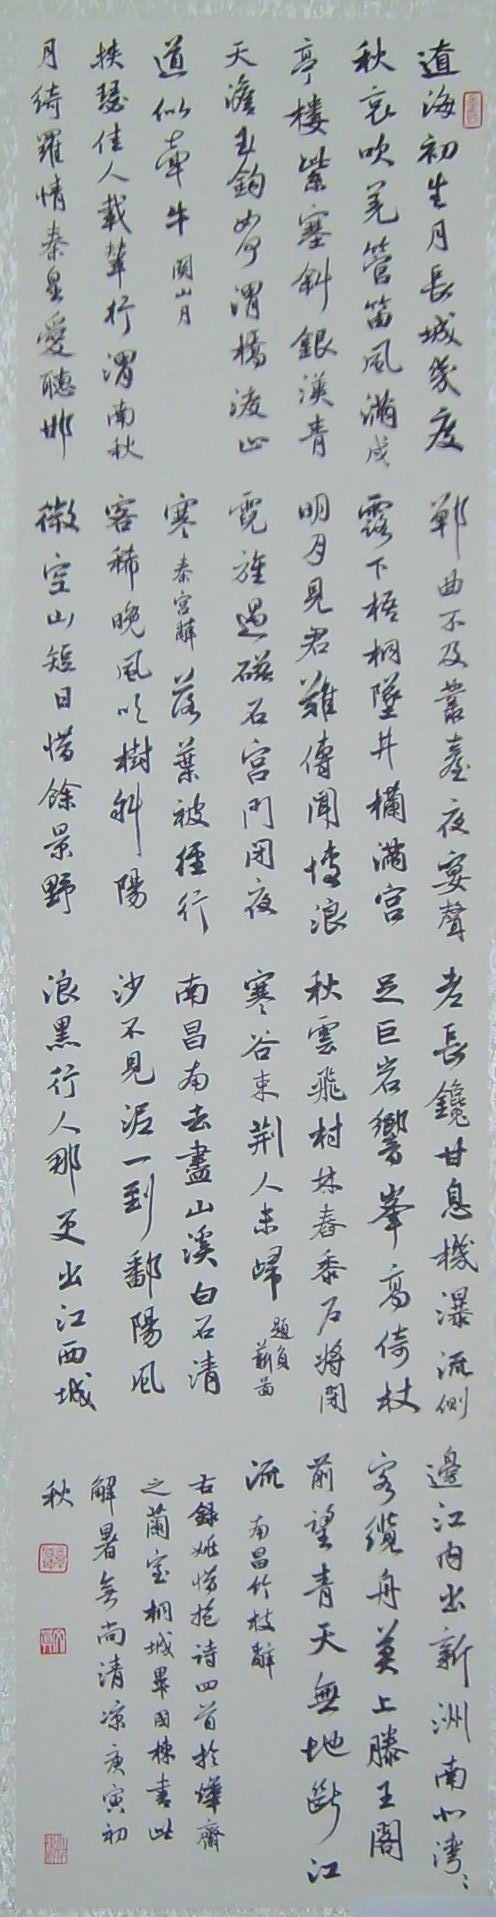 遼海初生月長城幾度
秋哀吹羌管笛風滿戍
亭樓紫塞斜銀漢青
天澹玉鉤如何渭橋淩
道似牽牛 關山月
挾瑟佳人載輦行渭南秋
月綺羅情秦皇愛聽邯
鄲曲不及叢臺夜宴聲
露下梧桐墜井欄滿宮
明月見君難傳聞博浪
霓旌過磁石宮門閉夜
寒 秦宮辭 落葉被徑行
客稀晚風吹樹斜陽
微空山短日惜餘景野
老長鑱甘息機瀑流側
足巨岩響峯高倚杖
秋雲飛村林舂黍石將閉
寒谷束荆人未歸 題負薪圖
南昌南去盡山溪白石清
沙不見泥一到鄱陽風
浪黑行人那更出江西城
邊江內出新洲南北灣灣
客纜舟莫上滕王閣
前望青天無地斷江
流 南昌竹枝辭
右錄姚惜抱詩四首於燁齋
之蘭室桐城畢國棟書此
解暑兼尚清凉庚寅初
秋